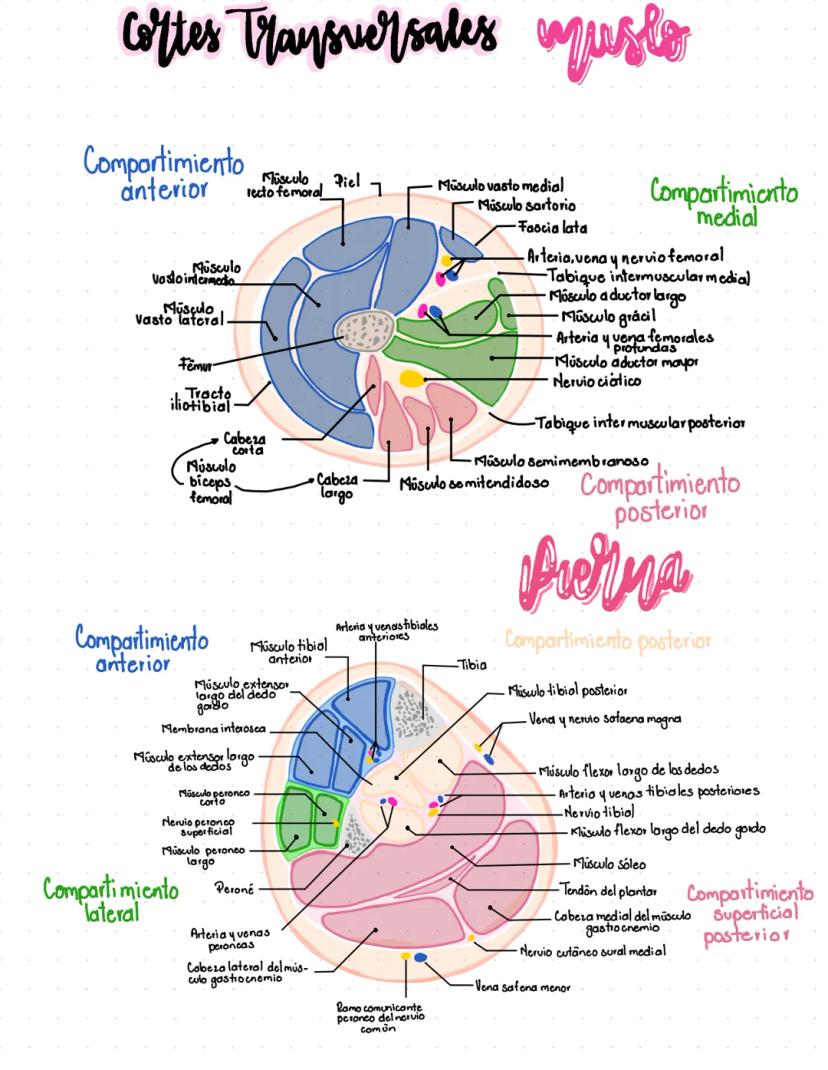 Cortes Transversales muslo
Compartimiento
anterior
Músculo
recto femoral
Piel
Músculo vasto medial
Músculo sartorio
Fascia lata
Compartimiento
medial
Arteria, vena y nervio femoral
Tabique intermuscular medial
Músculo aductor largo
Músculo grácil
Arteria y vena femorales
profundas
Músculo aductor mayor
Nervio ciático
Músculo
vasto intermedio
Músculo
vasto lateral
Fémur
Tracto
iliotibial
Cabeza
corta
Músculo
bíceps
femoral
Cabeza
largo
Tabique intermuscular posterior
Músculo semimembranoso
Músculo semitendidoso
Compartimiento
posterior
Pierna
Compartimiento
anterior
Arteria y venas tibiales
anteriores
Músculo tibial
anterior
Tibia
Compartimiento posterior
Músculo extensor
largo del dedo
gordo
Músculo tibial posterior
Membrana interosea
Vena y nervio safaena magna
Músculo extensor largo
de los dedos
Músculo flexor largo de los dedos
Músculo peroneo
corto
Arteria y venas tibiales posteriores
Nervio tibial
Nervio peroneo
superficial
Músculo flexor largo del dedo gordo
Músculo peroneo
largo
Músculo sóleo
Compartimiento
lateral
Peroné
Tendón del plantar
Compartimiento
superficial
posterior
Cabeza medial del músculo
gastrocnemio
Arteria y venas
peroneas
Nervio cutáneo sural medial
Cabeza lateral del mús-
culo gastrocnemio
Vena safena menor
Ramo comunicante
peroneo del nervio
común